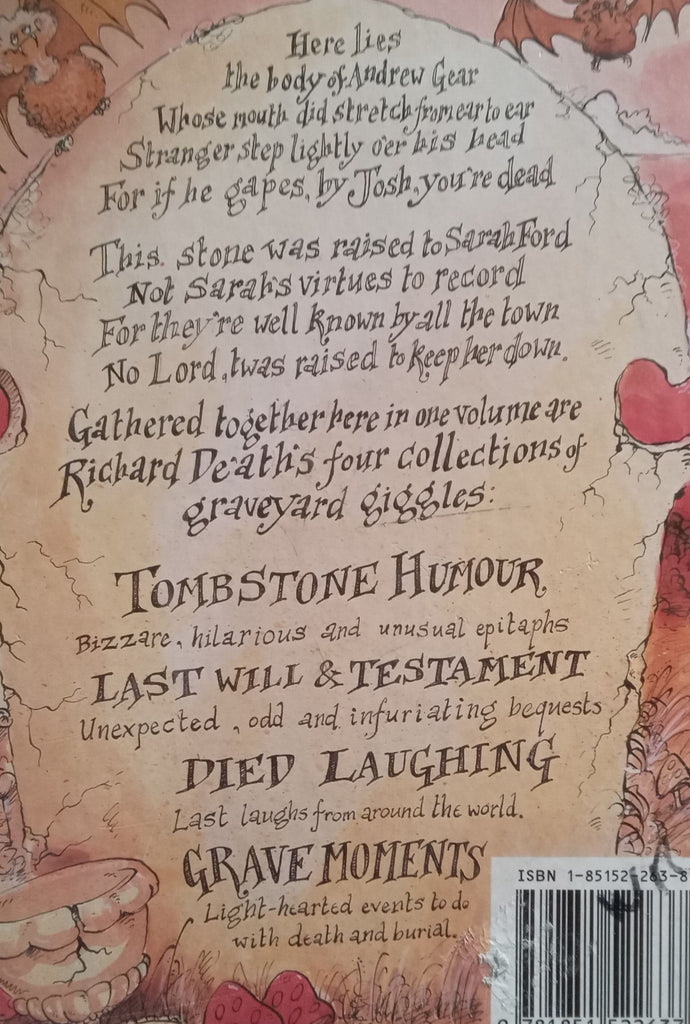 Here lies
the body of Andrew Gear
Whose mouth did stretch from ear to ear
Stranger step lightly o'er his head
For if he gapes, by Josh, you're dead
This stone was raised to Sarah Ford
Not Sarah's virtues to record
For they're well known by all the town
No Lord, twas raised to keep her down.
Gathered together here in one volume are
Richard De'ath's four collections of
graveyard giggles:
TOMBSTONE HUMOUR
Bizzare, hilarious and unusual epitaphs
LAST WILL & TESTAMENT
Unexpected, odd and infuriating bequests
DIED LAUGHING
Last laughs from around the world.
GRAVE MOMENTS
Light-hearted events to do
with death and burial.
ISBN 1-85152-263-8